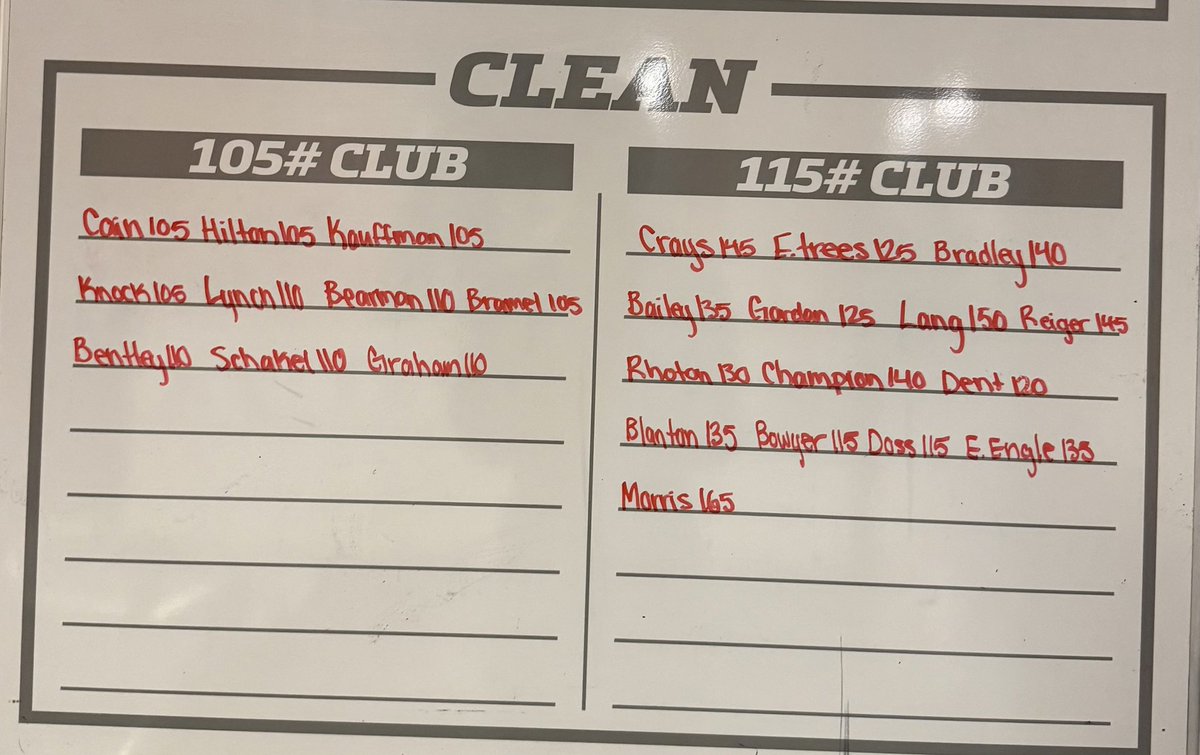 CLEAN
105# CLUB
Cain 105 Hilton 105 Kauffman 105
Knock 105 Lynch 110 Bearman 110 Bramel 105
Bentley 110 Schakel 110 Graham 110
115# CLUB
Crays 145 E.trees 125 Bradley 140
Bailey 135 Gordon 125 Lang 150 Reiger 145
Rhoton 130 Champion 140 Dent 120
Blanton 135 Bowyer 115 Doss 115 E. Engle 135
Morris 165